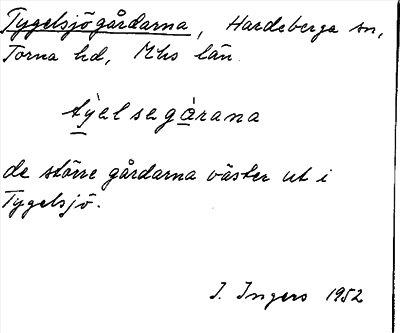 Tygelsjögårdarna, Hardeberga sn,
Torna hd, Mhs län
týelsegàrana
de större gårdarna väster ut i
Tygelsjö.
I. Ingers 1952